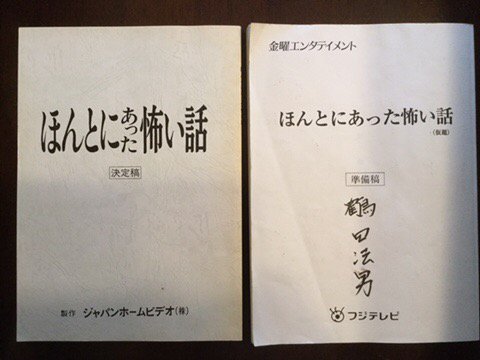 ほんとにあった怖い話
決定稿
製作 ジャパンホームビデオ(株)
金曜エンタテイメント
ほんとにあった怖い話
(仮題)
準備稿
鶴田法男
フジテレビ